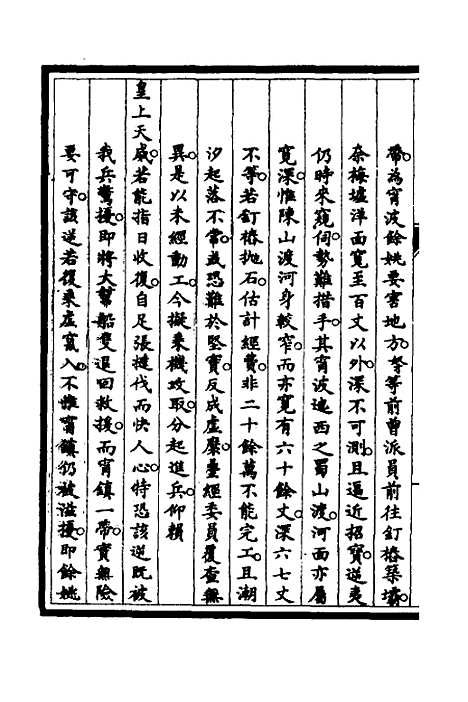 帶為甯波餘姚要害地方努等前曽派員前往釘樁築壩
奈梅墟洋面寬至百丈以外深不可測且逼近招寶逆夷
仍時來窺伺勢難措手其甯波迤西之蜀山渡河面亦屬
寬深惟陳山渡河身較窄而亦寬有六十餘丈深六七丈
不等若釘樁拋石估計經費非二十餘萬不能完工且潮
汐起落不常誠恐難於堅實反成虛糜臺經委員覆查無
異是以未經動工今擬乘機攻取分起進兵仰賴
皇上天威若能指日收復自足張撻伐而快人心特恐該逆既被
我兵驚擾即將大幫船隻退回救援而甯鎮一帶實無險
要可守該逆若復乘虛竄入不惟甯鎮仍被滋擾即餘姚